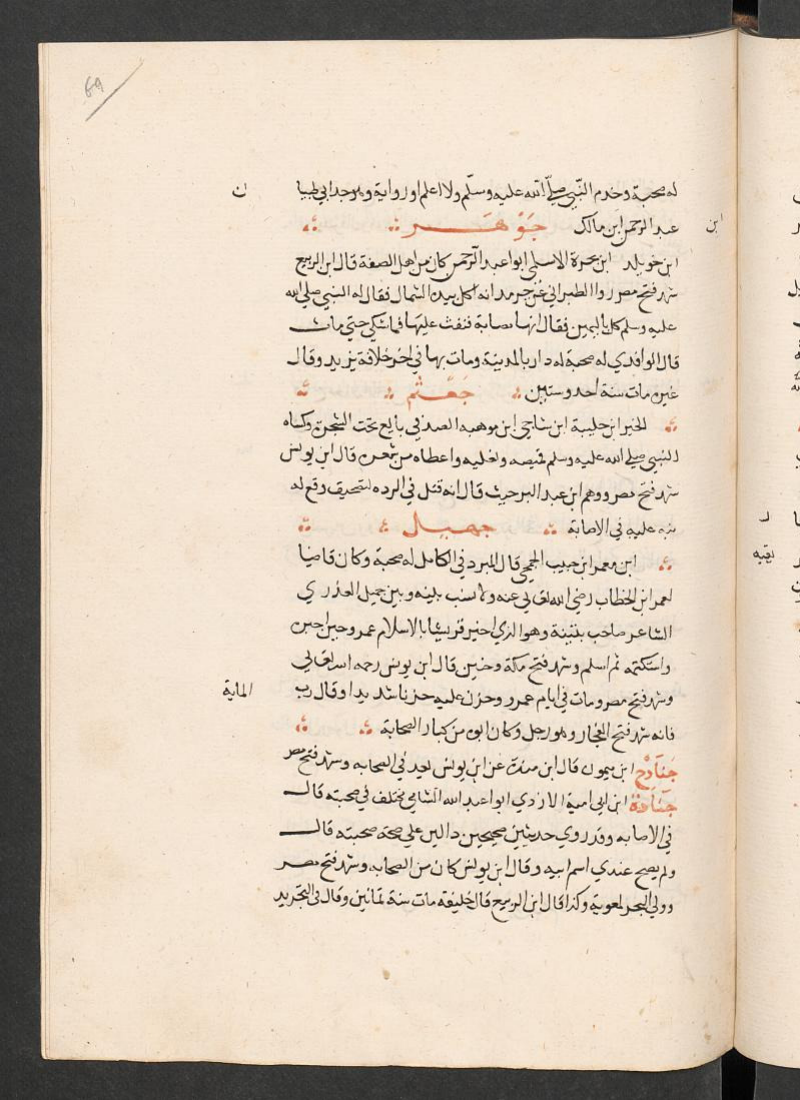 69
له صحبة وخدم النبي صلى الله عليه وسلم ولا اعلم له رواية وهو جد ابي ظبيان
عبد الرحمن ابن مالك جوهر
ابن خويلد ابن بحرة الاسلمي ابو عبد الرحمن كان من اهل الصفة قال ابن الربيع
شهد فتح مصر روا الطبراني عن جرهد انه اكل بيده الشمال فقال له النبي صلي الله
عليه وسلم كل باليمين فقال انها مصابة فنفث عليها فما شكي حتي مات
قال الواقدي له صحبة له دار بالمدينة ومات بها في اخر خلافة يزيد وقال
غيره مات سنة احد وستين جعثم
الخير ابن خليبة ابن شاجي ابن موهبه الصدفي بايع تحت الشجرة وكساه
النبي صلي الله عليه وسلم قميصه ونعليه واعطاه من شعره قال ابن يونس
شهد فتح مصر ووهم ابن عبد البر حيث قال انه قتل في الرده لتصحيف وقع له
نبه عليه في الاصابة جهبل
ابن معمر ابن حبيب الجمحي قال المبرد في الكامل له صحبة وكان قاضيا
لعمر ابن الخطاب رضي الله تعالي عنه ولا نسب بينه وبين جميل العذري
الشاعر صاحب بثينة وهو الذي اخبر قريشا بالاسلام عمر وحين اخبره
واستكتمه ثم اسلم وشهد فتح مكة وحنين قال ابن يونس رحمه الله تعالي
وشهد فتح مصر ومات في ايام عمر وحزن عليه حزنا شديدا وقارب الماية
فانه شهد فتح الفجار وهو رجل وكان ابوه من كبار الصحابة
جنادح ابن ميمون قال ابن منده عن ابن يونس يعد في الصحابه وشهد فتح مصر
جنادة ابن ابي امية الازدي ابو عبد الله الشامي مختلف في صحبته قال
في الاصابه وقد روي حديثين صحيحين دالين علي صحة صحبته قال
ولم يصح عندي اسم ابيه وقال ابن يونس كان من الصحابه وشهد فتح مصر
وولي البحر لمعوية وكذا قال ابن الربيع قال خليفه مات سنة ثمانين وقال في التجريد